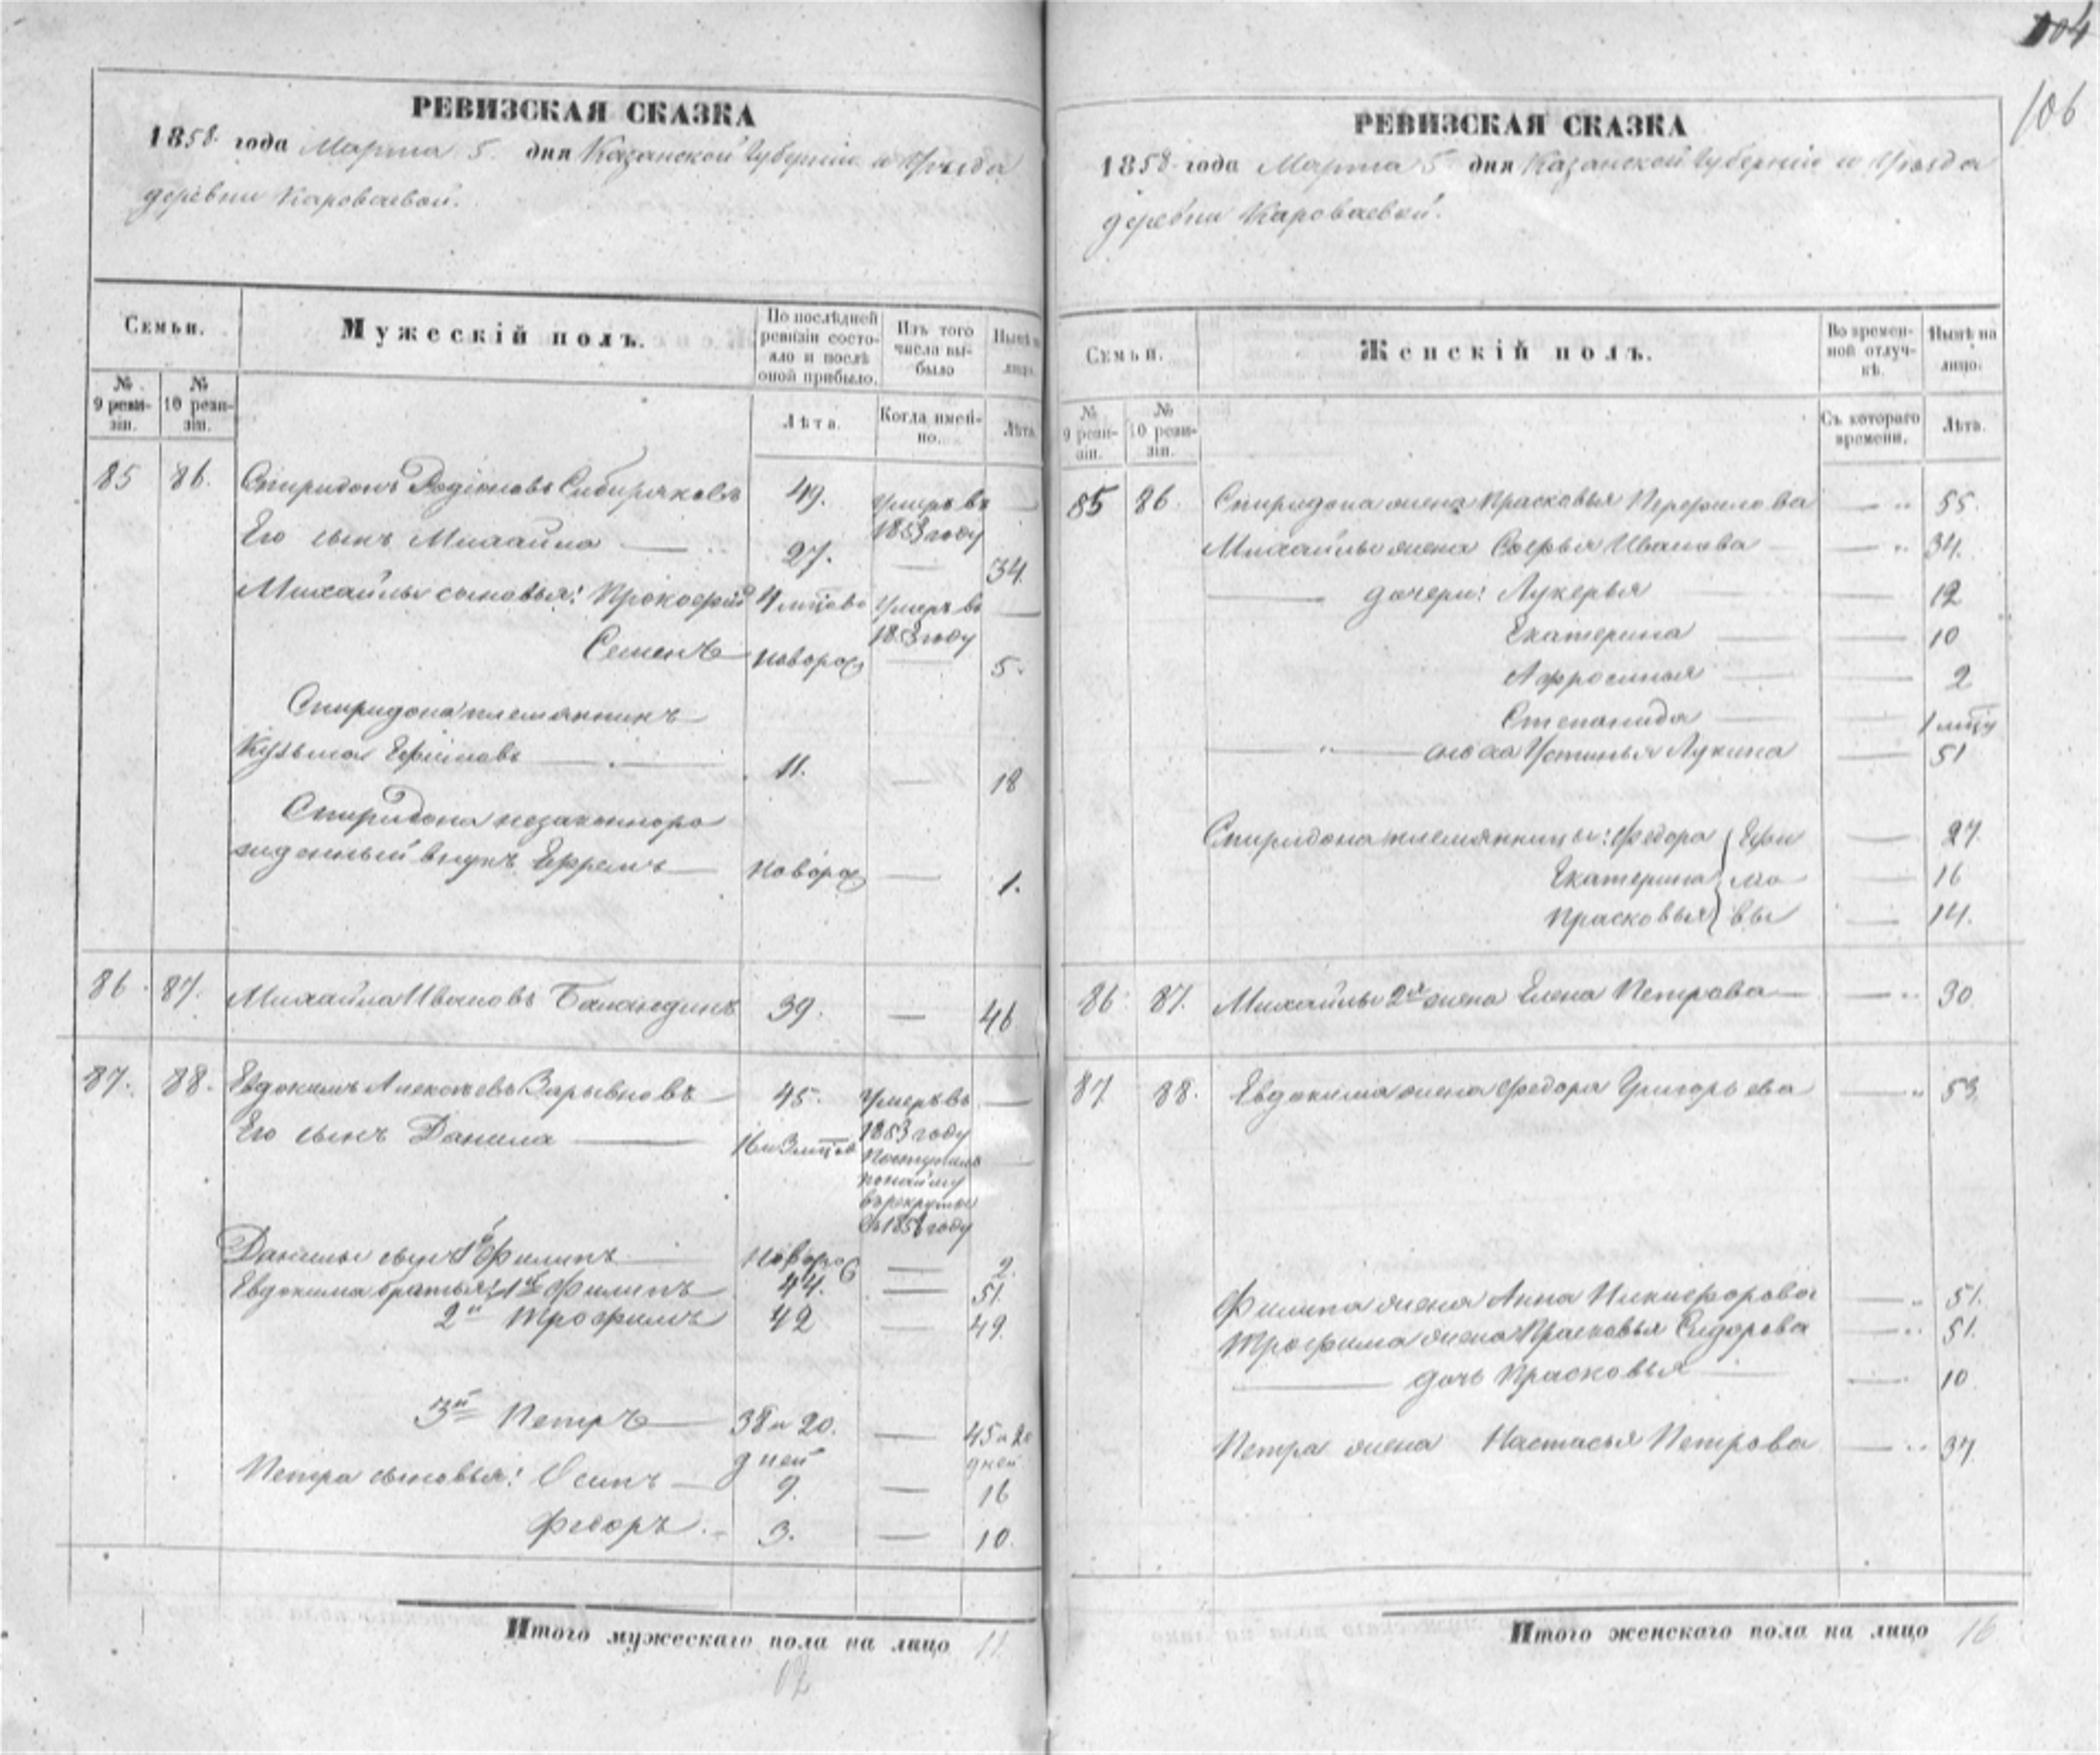 104
106
РЕВИЗСКАЯ СКАЗКА
1858 года Марта 5. дня Казанской Губерніи и Уѣзда
деревни Кароваевой.
Семьи.
Мужескій полъ.
По послѣдней ревизіи состояло и послѣ оной прибыло.
Изъ того числа выбыло
Нынѣ на лицо.
№ 9 ревизіи.
№ 10 ревизіи.
Лѣта.
Когда именно.
Лѣта.
85 86. Спиридонъ Родіоновъ Сибиряковъ 49. Умеръ въ 1853 году —
Его сынъ Михайло — 27. — 34.
Михайлы сыновья: Прокофій 4 мѣцовъ Умеръ въ 1853 году —
Семенъ новорож — 5.
Спиридона племянникъ
Кузьма Ефимовъ — 11. — 18
Спиридона незаконноро
жденный внукъ Ефремъ — новорож — 1.
86. 87. Михайла Ивановъ 39. — 46
87. 88. Евдокимъ Алексѣевъ 45. Умеръ въ 1853 году —
Его сынъ Данила — 16 и 3 мѣцов Поступилъ по найму въ рекруты въ году —
Данилы сынъ Филипъ новорож — 2.
Евдокима братья: 1й Филипъ 44. — 51.
2й Трофимъ 42 — 49.
3й Петръ — 38 и 20. дней — 45 и 20 дней
Петра сыновья: Осипъ — 9. — 16
Федоръ. 3. — 10.
Итого мужескаго пола на лицо 11.
12
РЕВИЗСКАЯ СКАЗКА
1858 года Марта 5 дня Казанской Губерніи и Уѣзда
деревни Кароваевой.
Семьи.
Женскій полъ.
Во временной отлучкѣ.
Нынѣ на лицо.
№ 9 ревизіи.
№ 10 ревизіи.
Съ котораго времени.
Лѣта.
85 86. Спиридона жена Прасковья Перфилова — 55.
Михайлы жена Софья Иванова — 34.
— дочери: Лукерья — 12
Екатерина — 10
Афросинья — 2
Степанида — 1 мѣцу
— " — сноха Устинья Лукина — 51
Спиридона племянницы: Федора } Ефи — 27.
Екатерина } мо — 16
Прасковья } вы — 14.
86 87. Михайлы 2я жена Елена Петрова — 30.
87 88. Евдокима жена Федора Григорьева — 53.
Филипа жена Анна Никифорова — 51.
Трофима жена Прасковья Сидорова — 51.
— дочь Прасковья — 10
Петра жена Настасья Петрова — 37
Итого женскаго пола на лицо 16